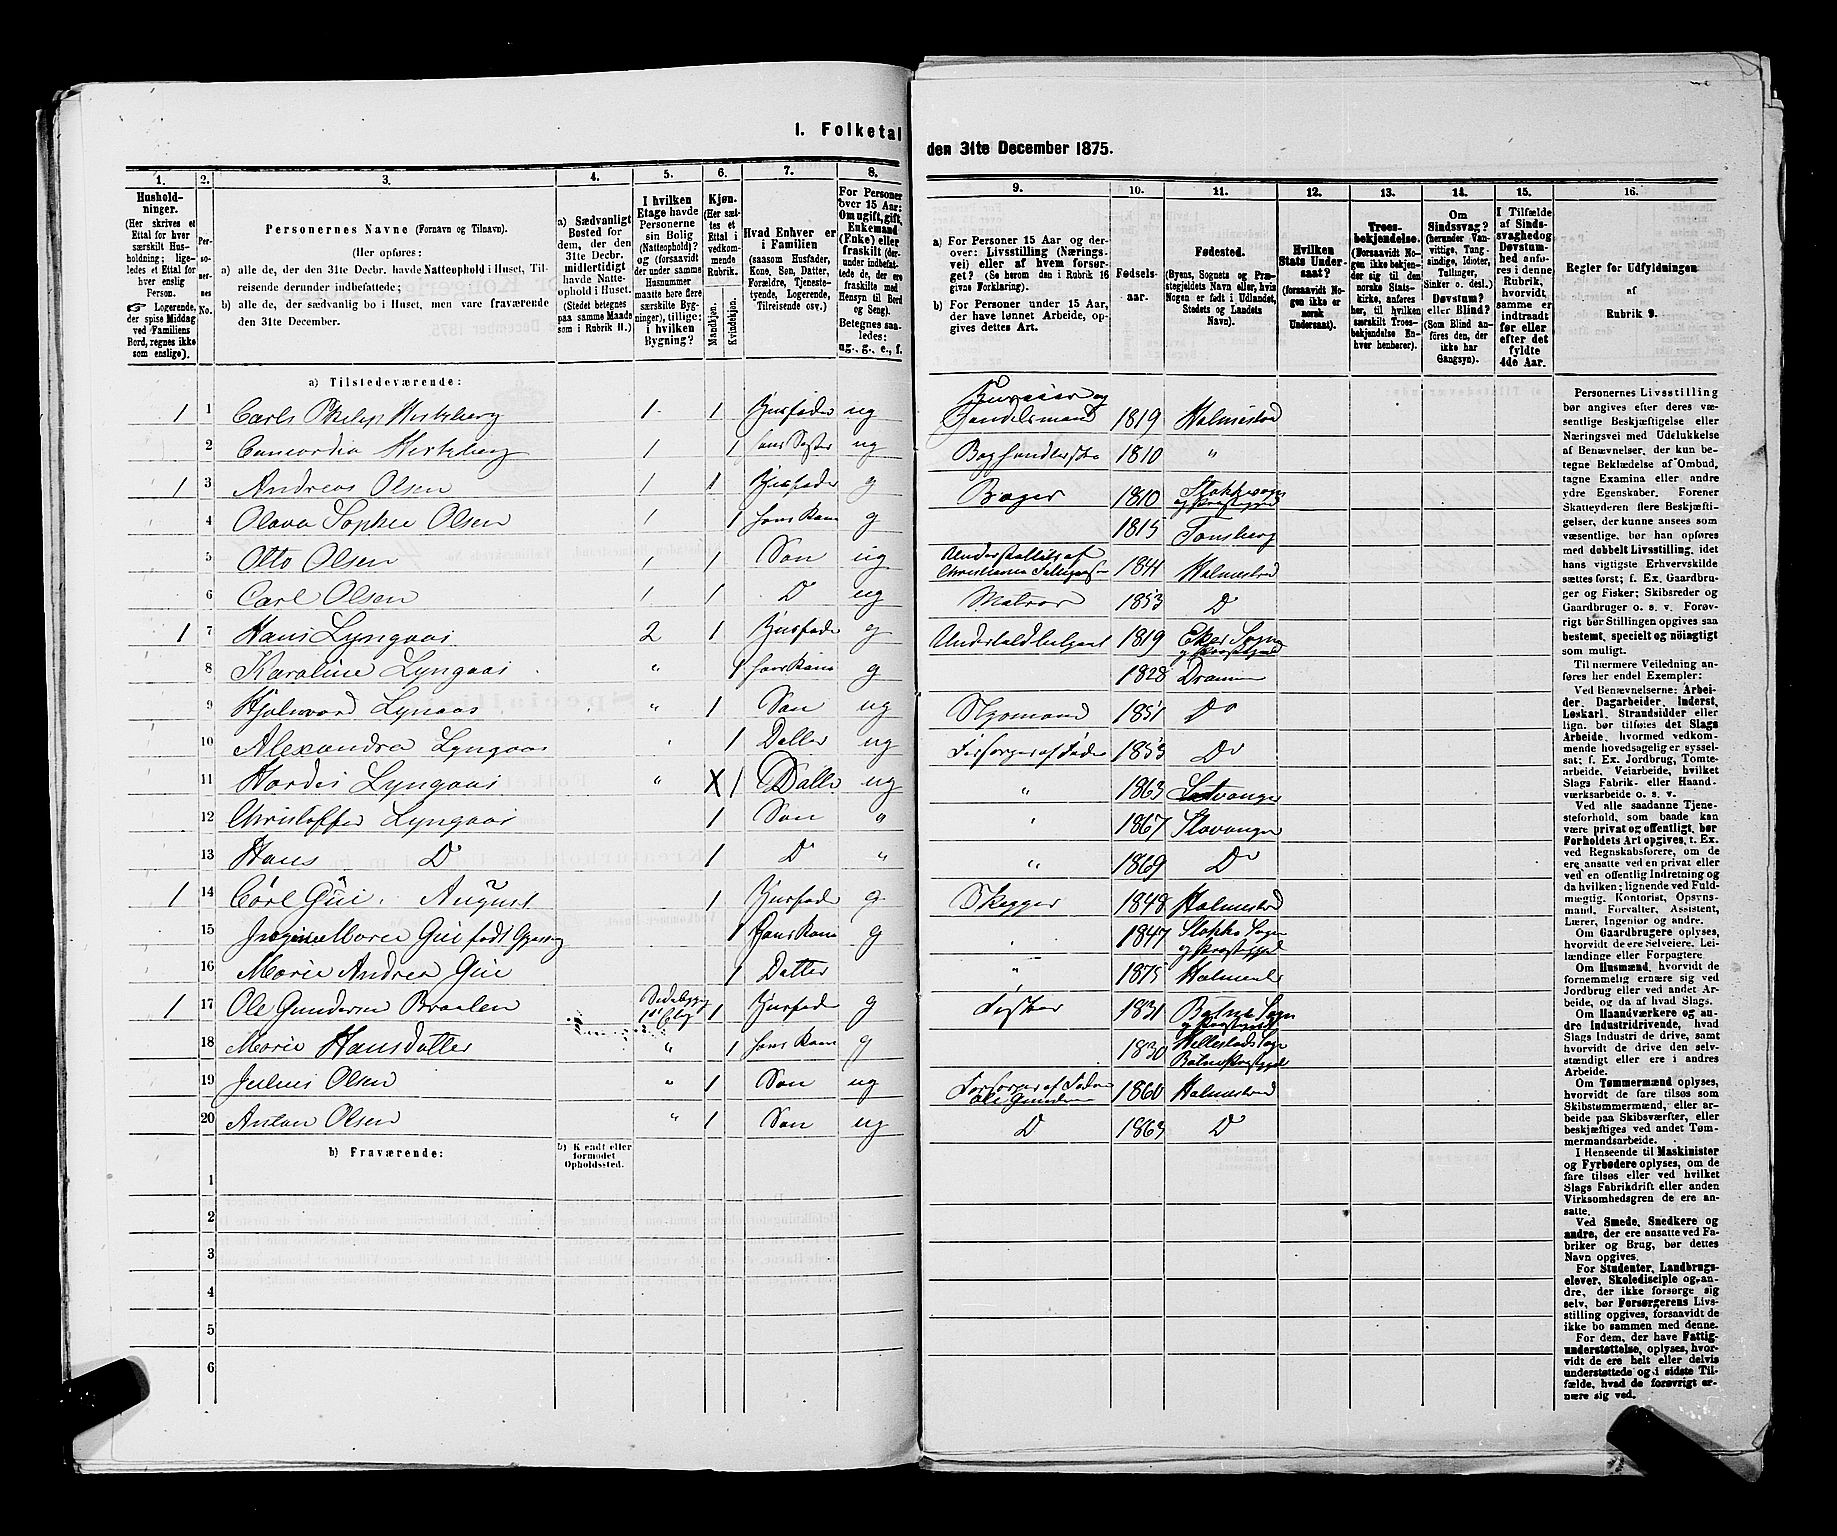 I. Folketal
den 31te December 1875.
1. 2. 3. 4. 5. 6. 7. 8. 9. 10. 11. 12. 13. 14. 15. 16.
Husholdninger. (Her skrives et Ettal for hver særskilt Husholdning; ligeledes et Ettal for hver enslig Person. Logerende, der spise Middag ved Familiens Bord, regnes ikke som enslige).
Personernes No.
Personernes Navne (Fornavn og Tilnavn).
(Her opføres:
a) alle de, der den 31te Decbr. havde Natteophold i Huset, Tilreisende derunder indbefattede;
b) alle de, der sædvanlig bo i Huset, men vare fraværende den 31te December.
a) Sædvanligt Bosted for dem, der den 31te Decbr. midlertidigt havde Natteophold i Huset. (Stedet betegnes paa samme Maade som i Rubrik 11.)
I hvilken Etage havde Personerne sin Bolig (Natteophold)? og (forsaavidt der under samme Husnummer maatte høre flere særskilte Bygninger), tillige: i hvilken Bygning?
Kjøn. (Her sættes et Ettal i vedkommende Rubrik.
Mandkjøn. Kvindekjøn.
Hvad Enhver er i Familien (saasom Husfader, Kone, Søn, Datter, Forældre, Tjenestetyende, Logerende, Tilreisende osv.)
For Personer over 15 Aar: Om ugift, gift, Enkemand (Enke) eller fraskilt (derunder indbefattede de, der ere fraskilte med Hensyn til Bord og Seng). Betegnes saaledes: ug., g., e., f.
a) For Personer 15 Aar og derover: Livsstilling (Næringsvei) eller af hvem forsørget? (Se herom den i Rubrik 16 givne Forklaring).
b) For Personer under 15 Aar, der have lønnet Arbeide, opgives dettes Art.
Fødselsaar.
Fødested. (Byens, Sognets og Præstegjeldets Navn eller, hvis Nogen er født i Udlandet, Stedets og Landets Navn).
Hvilken Stats Undersaat? (forsaavidt Nogen ikke er norsk Undersaat).
Troesbekjendelse. (Forsaavidt Nogen ikke bekjender sig til den norske Statskirke, anføres her, til hvilken særskilt Troesbekjendelse Enhver henhører).
Om Sindssvag? (herunder Vanvittige, Tungsindige, Idioter, Tullinger, Sinker o. desl.) Døvstum? eller Blind? (Som Blind anføres den, der ikke har Gangsyn).
I Tilfælde af Sindssvaghed og Døvstumhed anføres i denne Rubrik, hvorvidt samme er indtraadt før eller efter det fyldte 4de Aar.
Regler for Udfyldningen af Rubrik 9.
a) Tilstedeværende:
1 1 Carls Philip Hertzberg 1 1 Husfader ug Handelsmand 1819 Holmestrd
2 Concordia Hertzberg 1 1 hans Søster ug 1810 "
1 3 Andreas Olsen 1 1 Husfader g Bager 1810
4 Olava Sophie Olsen 1 1 hans Kone g 1815 Tønsberg
5 Otto Olsen 1 1 Søn ug Understøttes af 1841 Holmestrd
6 Carl Olsen 1 1 D ug Matros 1853 D
1 7 Hans Lyngaas 2 1 Husfader g 1819 Eker Sogn og Præstegjeld
8 Karoline Lyngaas " 1 hans Kone g 1828 Drammen
9 Hjalmard Lyngaas " 1 Søn ug Styrmand 1851 Do
10 Alexandra Lyngaas 1 Datter ug Forsørges af Fader 1853 Do
11 Hardis Lyngaas " X 1 Datter ug " 1863 Stavanger
12 Christoffer Lyngaas 1 Søn " 1867 Stavanger
13 Hans D 1 D " " 1869 Do
1 14 Carl Güi. August 1 Husfader g 1848 Holmestrd
15 Marie Gui født 1 Hans Kone g 1847 Stokke Sogn og Præstegjd
16 Marie Andrea Gui 1 Datter " 1875 Holmestr
1 17 Ole Gundersen Braalen Sidebygg 1st Etg 1 Husfader g Fisker 1831 Botne Sogn og Præstegjeld
18 Marie Hansdatter " 1 hans Kone g 1830 Hillestads Sogn Botne Præstegjd
19 Julius Olsen " 1 Søn ug Forsørges af Faderen Ole Gundersen 1860 Holmestrd
20 Anton Olsen " 1 Søn ug D 1863 D
b) Fraværende:
b) Kjendt eller formodet Opholdssted.
1
2
3
4
5
6
Personernes Livsstilling
bør angives efter deres væ-
sentlige Beskjæftigelse eller
Næringsvei med Udelukkelse
af Benævnelser, der kun be-
tegne Beklædelse af Ombud,
tagne Examina eller andre
ydre Egenskaber. Forener
Skatteyderen flere Beskjæfti-
gelser, der kunne ansees som
væsentlige, bør han opføres
med dobbelt Livsstilling, idet
hans vigtigste Erhvervskilde
sættes først; f. Ex. Gaardbru-
ger og Fisker; Skibsreder og
Gaardbruger o. s. v. Forøv-
rigt bør Stillingen opgives saa
bestemt, specielt og nøiagtigt
som muligt.
Til nærmere Veiledning an-
føres her endel Exempler:
Ved Benævnelserne: Arbei-
der, Dagarbeider, Inderst,
Løskarl, Strandsidder eller
lign. bør tilføies det Slags
Arbeide, hvormed vedkom-
mende hovedsagelig er syssel-
sat; f. Ex. Jordbrug, Tomte-
arbeide, Veiarbeide, hvilket
Slags Fabrik- eller Haand-
værksarbeide o. s. v.
Ved alle saadanne Tjene-
steforhold, som baade kan
være privat og offentligt, bør
Forholdets Art opgives, t. Ex.
ved Regnskabsførere, om de
ere ansatte ved en privat eller
ved en offentlig Indretning og
da hvilken; lignende ved Fuld-
mægtig, Kontorist, Opsyns-
mand, Forvalter, Assistent,
Lærer, Ingeniør og andre.
Om Gaardbrugere oplyses,
hvorvidt de ere Selveiere, Lei-
lændinge eller Forpagtere.
Om Husmænd, hvorvidt de
fornemmelig ernære sig ved
Jordbrug eller ved andet Ar-
beide, og da af hvad Slags.
Om Haandværkere og an-
dre Industridrivende, hvad
Slags Industri de drive, samt
hvorvidt de drive den selv-
stændigt eller ere i andres
Arbeide.
Om Tømmermænd oplyses,
hvorvidt de fare tilsøs som
Skibstømmermænd, eller ar-
beide paa Skibsværfter, eller
beskjæftiges ved andet Tøm-
mermandsarbeide.
I Henseende til Maskinister
og Fyrbødere oplyses, om de
fare tilsøs eller ved hvilket
Slags Fabrikdrift eller anden
Virksomhedsgren de ere an-
satte.
Ved Smede, Snedkere og
andre, der ere ansatte ved Fa-
briker og Brug, bør dettes
Navn opgives.
For Studenter, Landbrugs-
elever, Skoledisciple og an-
dre, der ikke forsørge sig
selv, bør Forsørgerens Livs-
stilling opgives, forsaavidt de
ikke bo sammen med denne.
For dem, der have Fattig-
understøttelse, oplyses, hvor-
vidt de ere helt eller delvis
understøttede og i sidste Til-
fælde, hvad de forøvrigt er-
nære sig ved.